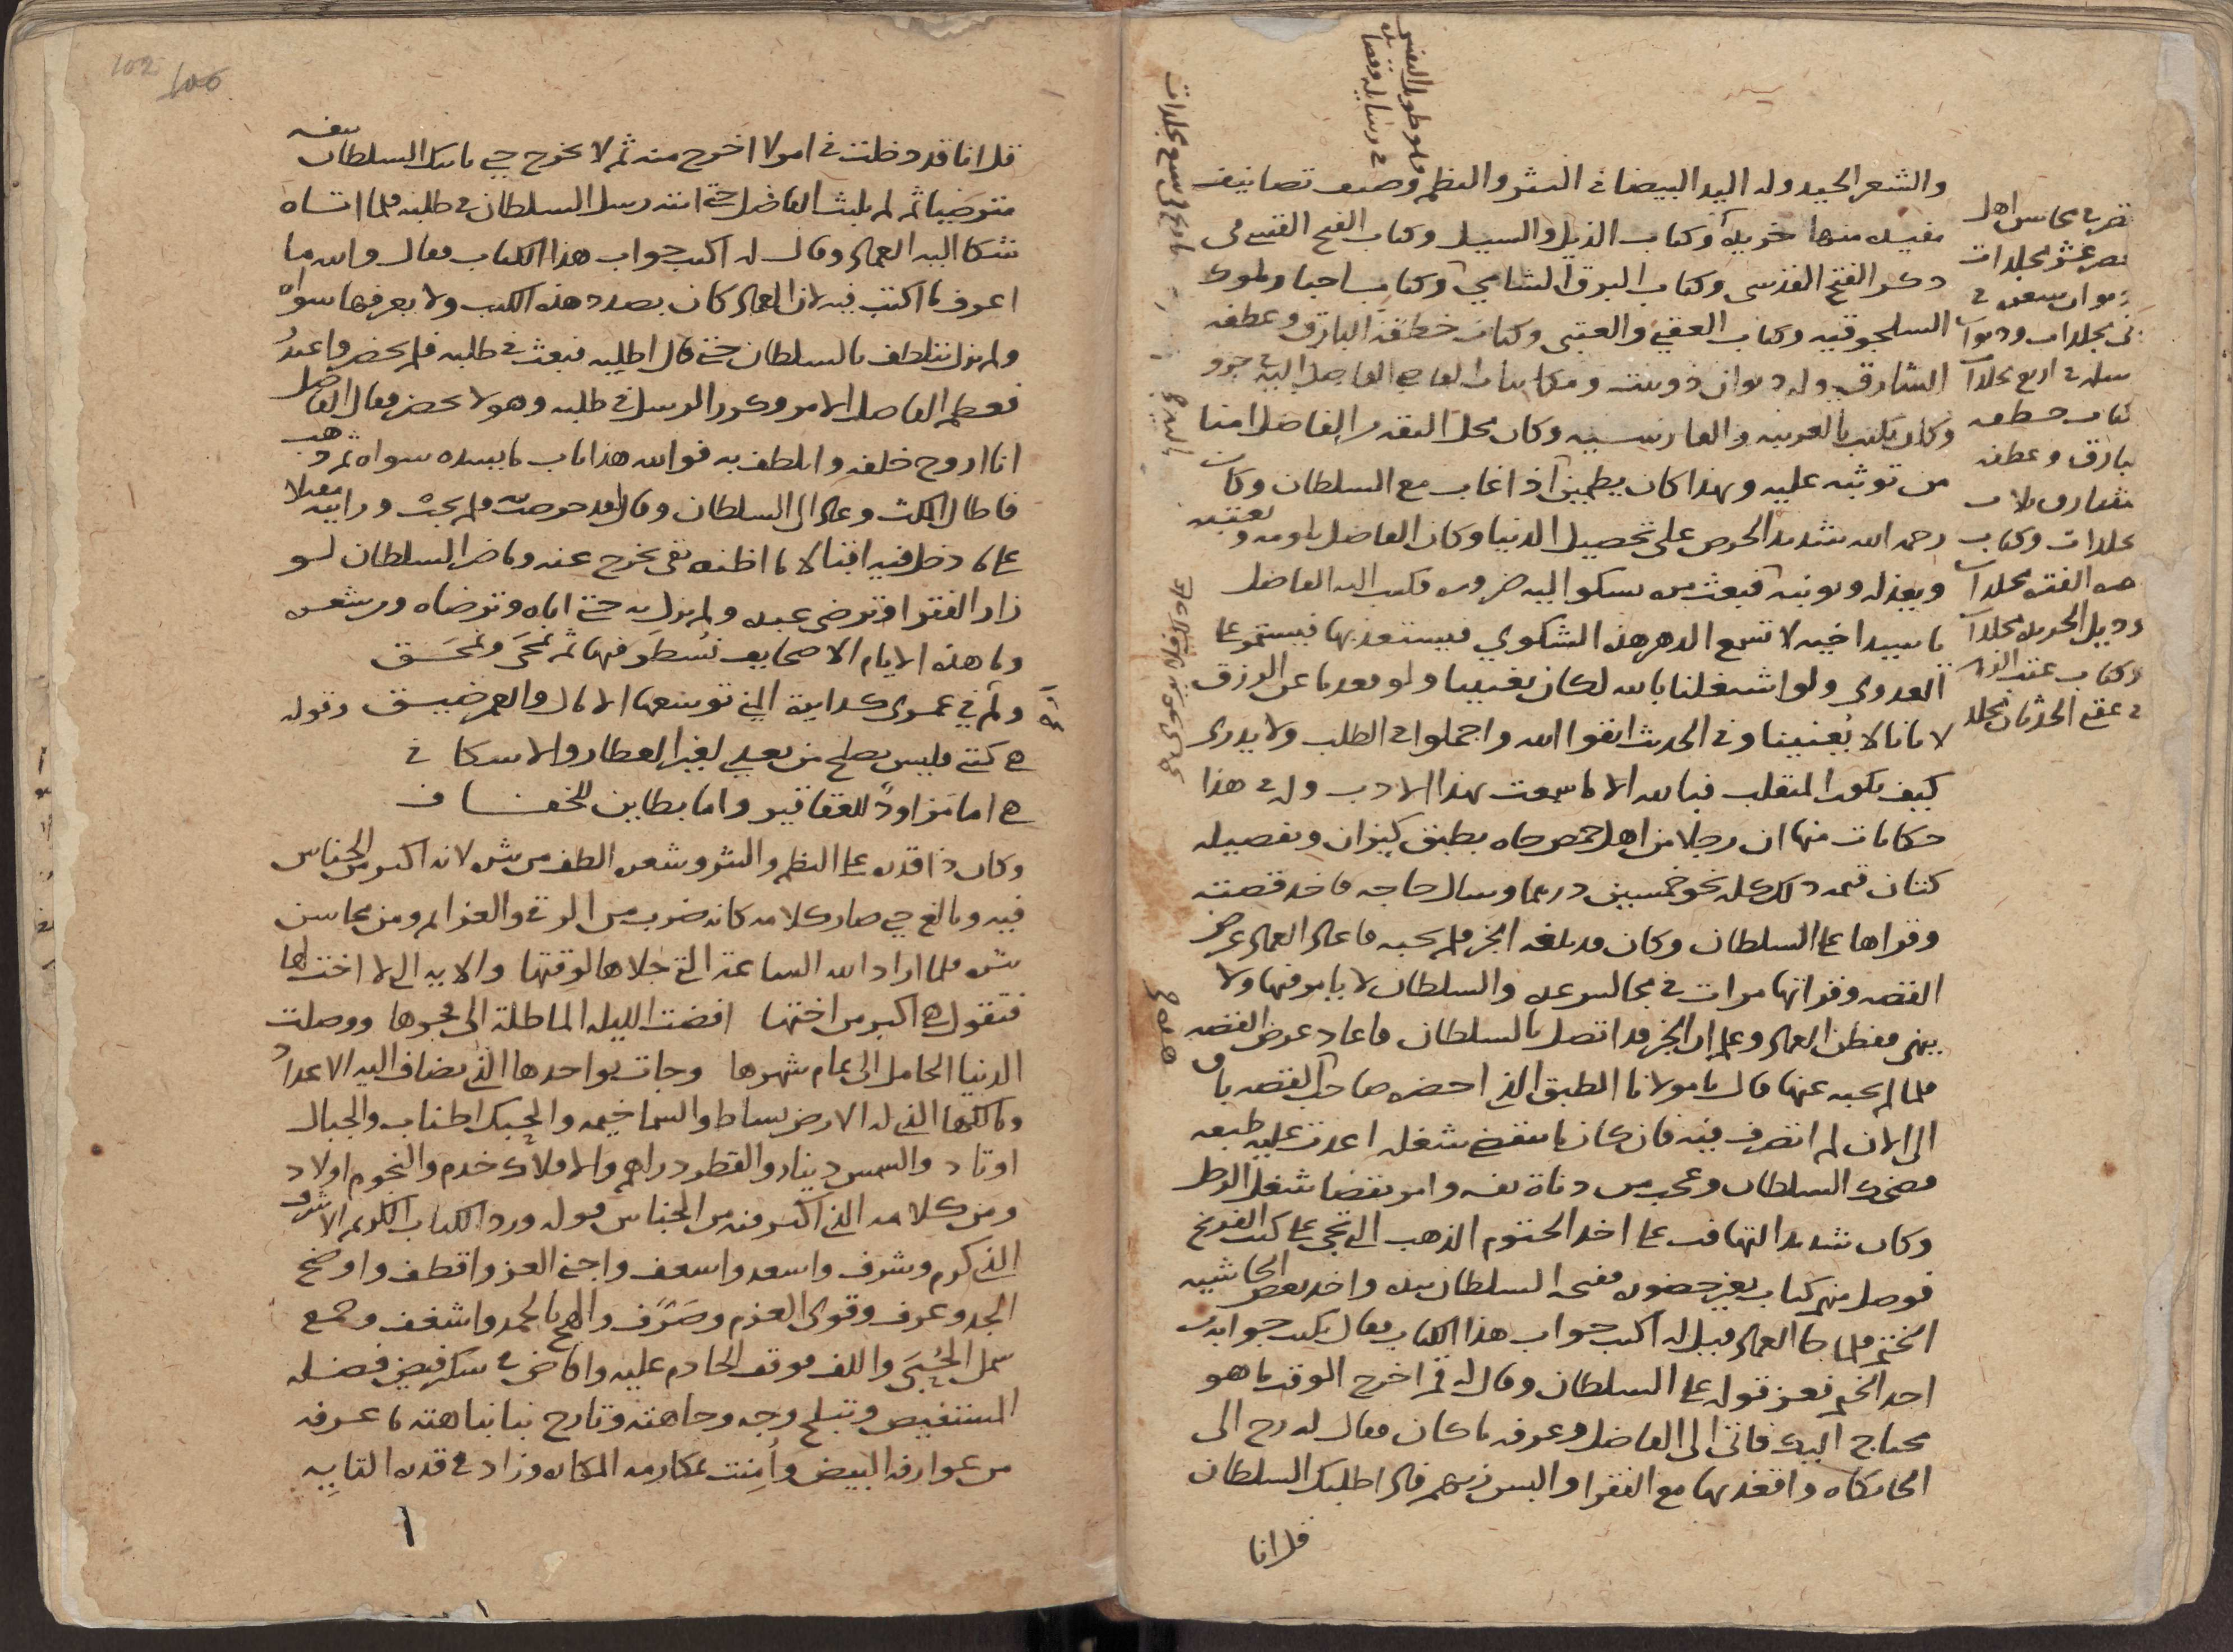 والشعر الجيد وله اليد البيضا فى النثر والنظم وصنف تصانيف
مفيده منها خريدة وكتاب الذيل والسيل وكتاب الفيح القسي فى
ذكر الفتح القدسى وكتاب البرق الشامي وكتاب اخبار ملوك
السلجوقيه وكتاب العقبي والعتبى وكتاب خطفة البارق وعطفه
الشارق وله ديوان دوبيت ومكاتبات القاضى الفاضل اليه فى جزو
وكان يكتب بالعربيه والفارسيه وكان محل الثقه من الفاضل امنا
من توثبه عليه وبهذا كان يطمين اذا غاب مع السلطان وكان
رحمه الله شديد الحرص على تحصيل الدنيا وكان الفاضل يلومه ويعتبه
ويعذله ويونبه فبعث مره يشكوا اليه ضروره فكتب اليه الفاضل
يا سيدا خيه لا تسمع الدهر هذه الشكوي فيستعذبها فيستمر على
العدوى ولو اشتغلنا بالله لكان يغنينا ولو بعدنا عن الرزق
لاتانا لا يُعنينا وفى الحديث اتقوا الله واجملوا فى الطلب ولا يدرى
كيف يكون المنقلب فبالله الا ما سمعت بهذا الادب وله فى هذا
حكايات منها ان رجلا من اهل حمص جاه بطبق كيزان وتفصيله
كتان قيمه ذلك كله نحو خمسين درهما وسال حاجه فاخذ قصته
وقراها على السلطان وكان قد بلغه الخبر فلم يجبه فاعاد العماد عرض
القصه وقراتها مرات فى مجالس عده والسلطان لا يامر فيها ولا
ينهى ففطن العماد وعلم ان الخبر قد اتصل بالسلطان فاعاد عرض القصه
فلما لم يجبه عنها قال يا مولانا الطبق الذى احضره صاحب القصه باق
الى الان لم اتصرف فيه فان كان ما ينقضى شغله اعدت عليه طبقه
فضحك السلطان وعجب من دناة نفسه وامر بقضا شغل الرجل
وكان شديد التهافت على اخذ الختوم الذهب التى تجى على كتب الفرنج
فوصل منهم كتاب بغير حضوره ففتحه السلطان بيده واخذ بعض الحاشيه
الختم فلما جا العماد قيل له اكتب جواب هذا الكتاب فقال يكتب جوابه من
اخذ الختم فعز قوله على السلطان وقال له قم اخرج الوقت ما هو
محتاج اليك فاتى الى الفاضل وعرفه ما كان فقال له رح الى
الخانكاه واقعد بها مع الفقرا والبس زيهم فاذا طلبك السلطان
قل انا
تقريب محاسن اهل
عصر عشر مجلدات
كتاب خطفه
بارق وعطفه
شارق ثلاث
مجلدات وكتاب
وذيل الخريده مجلدات
فى عقبى الحدثان مجلد
قل انا قد دخلت فى امر لا اخرج منه ثم لا تخرج حتى ياتيك السلطان بنفسه
مترضيا ثم لم يلبث الفاضل حتى اتته رسل السلطان فى طلبه فلما اتاه
شكا اليه العماد وقال له اكتب جواب هذا الكتاب فقال والله ما
اعرف ما اكتب فيه لان العماد كان بصدد هذه الكتب ولا يعرفها سواه
ولم يزل يتلطف بالسلطان حتى قال اطلبه فبعث فى طلبه فلم يحضر واعيدُ
فعظم الفاضل الامر وكرر الرسل فى طلبه وهو لا يحضر فقال الفاضل
انا اروح خلفه واتلطف به فوالله هذا باب ما يسده سواه ثم ذهب
فاطال المكث وعاد الى السلطان وقال لقد حرصت به فلم يجب ورايته مقبلا
على ما دخل فيه اقبالا ما اظنه بقى يخرج عنه وما ضر السلطان لو
زار الفقرا وترضى عبده ولم يزل به حتى اتاه وترضاه ومن شعره
وما هذه الايام الا صحايف نُسطر فيها ثم تمحى وتمحق
ولم ار فى عمرى كدايرة المنى توسعها الامال والعمر ضيق وقوله
هى كتبى فليس تصلح من بعدى لغير العطار والاسكافى
هى اما مزاود للعقاقير واما بطاين للخفاف
وكان ذا قدره على النظم والنثر وشعره الطف من نثره لانه اكثر من الجناس
فيه وبالغ حتى صار كلامه كانه ضرب من الرقى والعزايم ومن محاسن
نثره فلما اراد الله الساعة التى جلاها لوقتها والايه التى لا اخت لها
فتقول هى اكبر من اختها افضت الليله الماطلة الى فجرها ووصلت
الدنيا الحامل الى تمام شهرها وجات بواحدها الذى تضاف اليه الاعداد
ومالكها الذى له الارض بساط والسما خيمه والحبك اطناب والجبال
اوتاد والشمس دينار والقطر دراهم والافلاك خدم والنجوم اولاد
ومن كلامه الذى اكثر فيه من الجناس قوله ورد الكتاب الكريم الاشرف
الذى كرم وشرف واسعد واسعف واجنى العز واقطف واوضح
المجد وعرف وقوى العزم وصَرّف والهج بالحمد واشغف وجمع
شمل الحُبّ واللف فوقف الخادم عليه وافاض فى شكر فيض فضله
المستفيض وتبلج وجه وجاهته وتارج نبا نباهته ما عرفه
من عوارفه البيض وأمِنت بمكارمه المكاره وزاد فى قدره القابِه